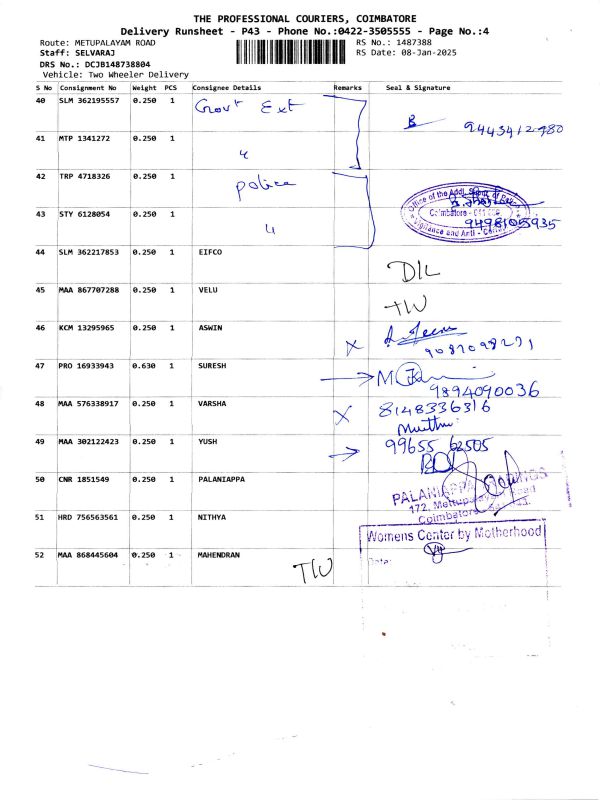 THE PROFESSIONAL COURIERS, COIMBATORE
Delivery Runsheet - P43 - Phone No.:0422-3505555 - Page No.:4
Route: METUPALAYAM ROAD RS No.: 1487388
Staff: SELVARAJ RS Date: 08-Jan-2025
DRS No.: DCJB148738804
Vehicle: Two Wheeler Delivery
S No Consignment No Weight PCS Consignee Details Remarks Seal & Signature
40 SLM 362195557 0.250 1 Govt Ext
B 9443412980
41 MTP 1341272 0.250 1
"
42 TRP 4718326 0.250 1 police
Office of the Addl. Supdt of Police
Coimbatore - 641
43 STY 6128054 0.250 1 " 9498105935
Vigilance and Anti -
44 SLM 362217853 0.250 1 EIFCO
D/L
45 MAA 867707288 0.250 1 VELU
T/W
46 KCM 13295965 0.250 1 ASWIN
X 9087098271
47 PRO 16933943 0.630 1 SURESH
9894090036
48 MAA 576338917 0.250 1 VARSHA X 8148336316
Muthu
49 MAA 302122423 0.250 1 YUSH 99655 62505
50 CNR 1851549 0.250 1 PALANIAPPA
PALANIAPPA
172, Mettupalayam Road
Coimbatore
51 HRD 756563561 0.250 1 NITHYA
Womens Center by Motherhood
52 MAA 868445604 0.250 1 MAHENDRAN
Date:
T/W